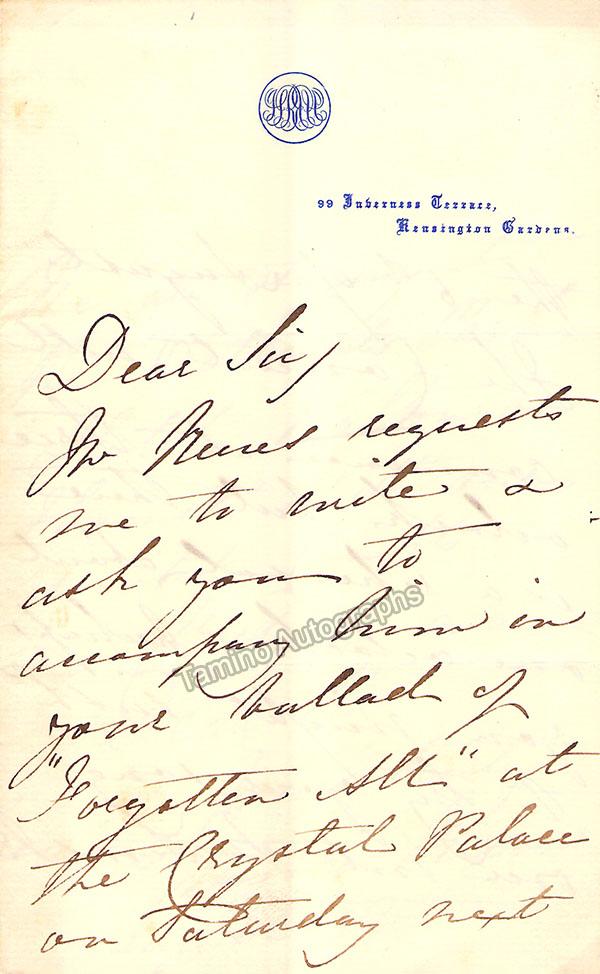 99 Inverness Terrace,
Kensington Gardens.
Dear Sir,
Mr Reeves requests
me to write &
ask you to
accompany him in
your ballad of
"Forgotten All" at
the Crystal Palace
on Saturday next
Tamino Autographs